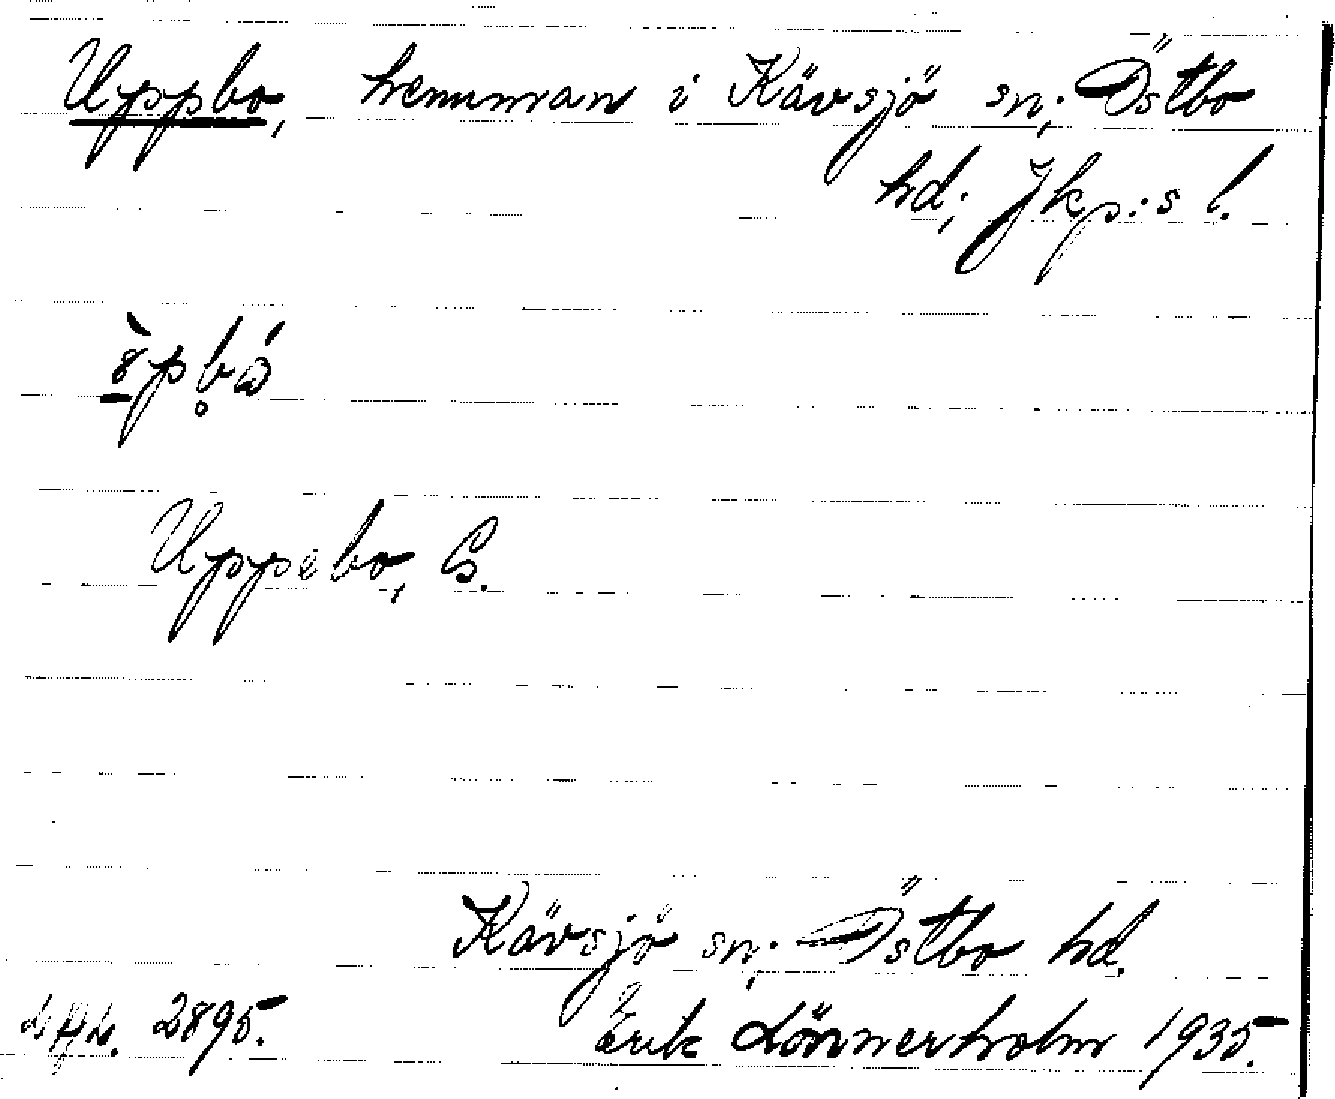 Uppbo, hemman i Kävsjö sn; Östbo
hd; Jkp:s l.
Uppebo, S.
Kävsjö sn; Östbo hd.
2895. Erik Lönnerholm 1935.